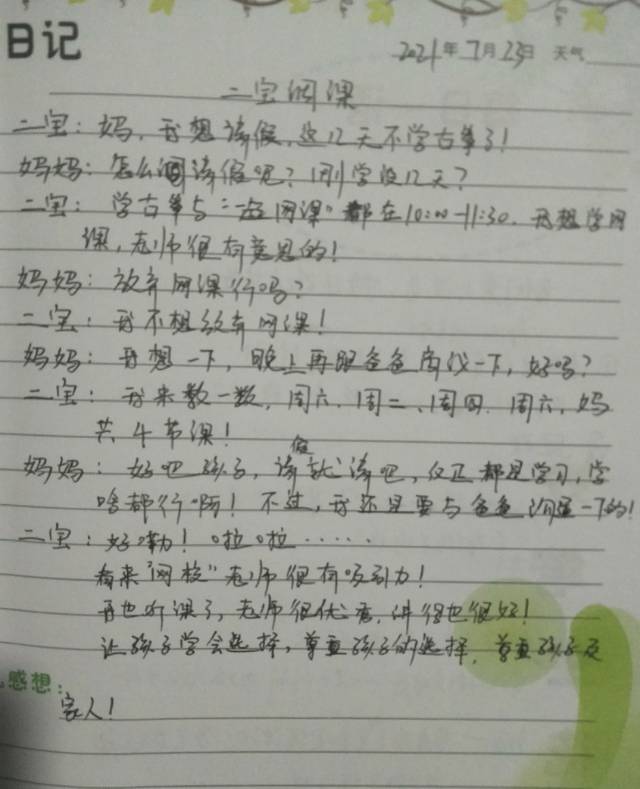 日记
2021年7月23日 天气
二宝网课
二宝：妈，我想请假，这几天不学古筝了！
妈妈：怎么请假呢？刚学没几天？
二宝：学古筝与“网课”都在10:00-11:30，我想学网
课，老师很有意思的！
妈妈：放弃网课行吗？
二宝：我不想放弃网课！
妈妈：我想一下，晚上再跟爸爸商议一下，好吗？
二宝：我来数一数，周六、周二、周四、周六，妈
共4节课！
妈妈：好吧孩子，请假就请吧，反正都是学习，学
啥都行啊！不过，我还是要与爸爸沟通一下的！
二宝：好嘞！啦啦……
看来“网校”老师很有吸引力！
我也听课了，老师很优秀，讲得也很好！
让孩子学会选择，尊重孩子的选择，尊重孩子及
感想：
家人！